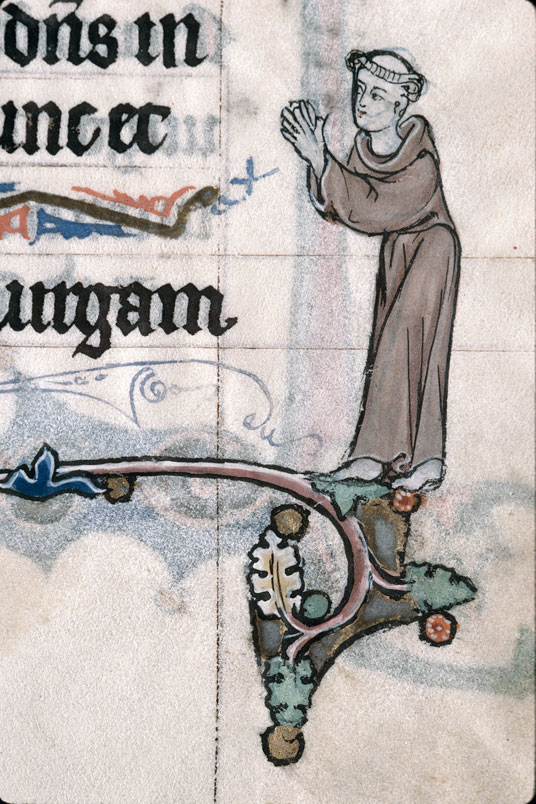 dn̄s in
unc et
urgam